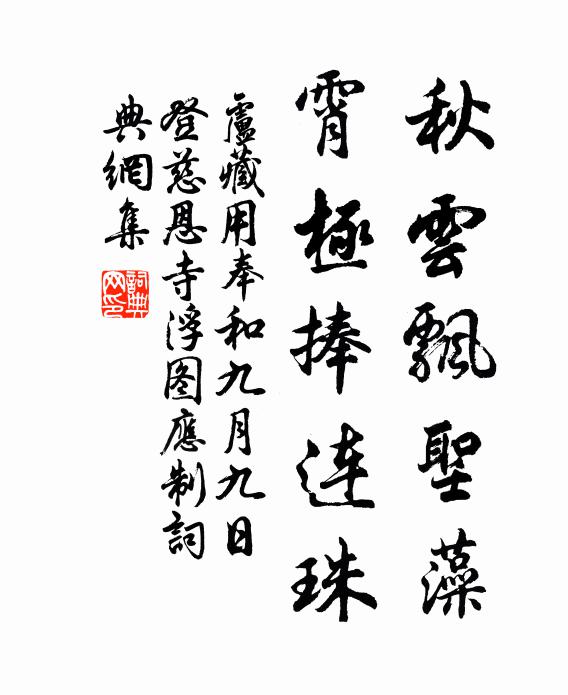 秋雲飄聖藻
霄極捧連珠
盧藏用奉和九月九日
登慈恩寺浮图應制詞
典網集
詞典網印